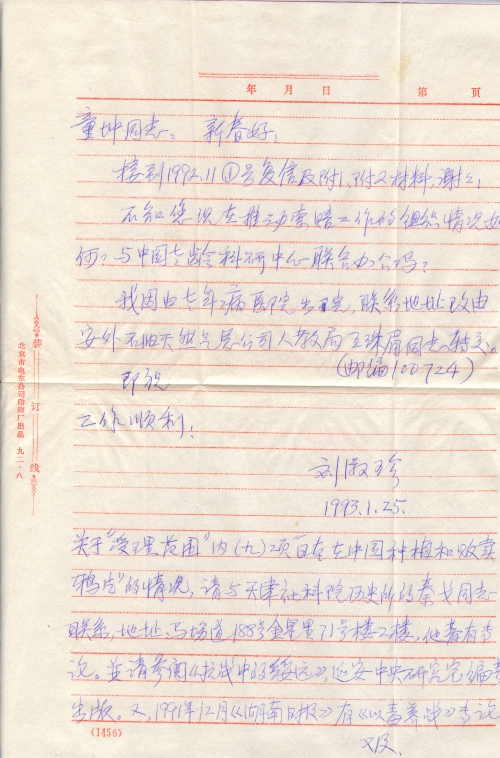 年 月 日 第 页
童坤同志: 新春好!
接到1992.11①号复信及附1、附2材料,谢谢!
不知您现在推动索赔工作的组织情况如
何?与中国老龄科研中心联合办公吗?
我因由老年病医院出院,联系地址改由
安外石油天然气总公司人教局王珠眉同志转交。
(邮编100724)
即祝
工作顺利!
刘淑珍
1993.1.25.
关于“受理范围”内(九)项“日在在中国种植和贩卖
鸦片”的情况,请与天津社科院历史所的
联系,地址:马场道188号 71号楼2楼,他著有专
论。并请参阅《抗战中的绥远》,延安中央研究室编著
出版。又,1991年12月《湖南日报》有《以毒养战》专论
又及.
(1456)
装 订 线
北京市电车公司印刷厂出品 九二·八